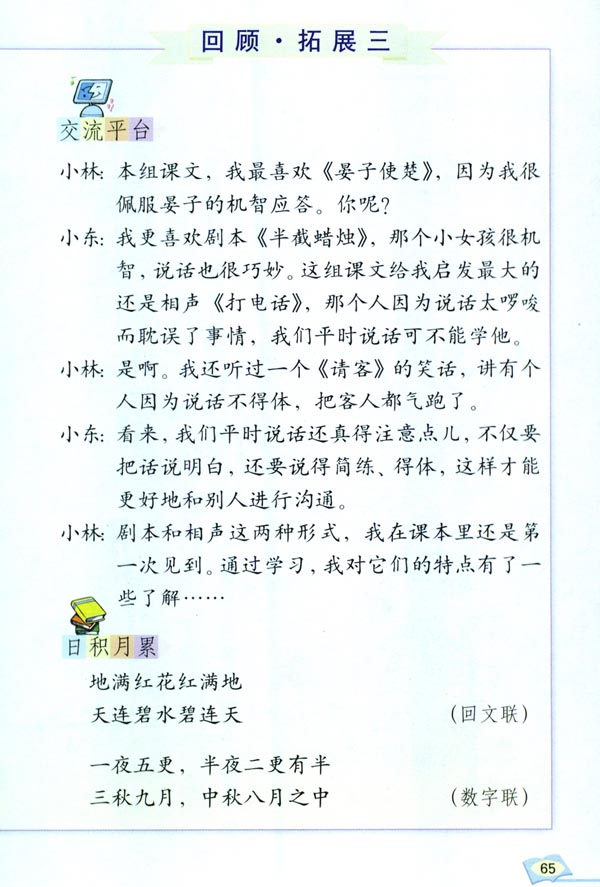 回顾·拓展三
交流平台
小林：本组课文，我最喜欢《晏子使楚》，因为我很
佩服晏子的机智应答。你呢？
小东：我更喜欢剧本《半截蜡烛》，那个小女孩很机
智，说话也很巧妙。这组课文给我启发最大的
还是相声《打电话》，那个人因为说话太啰唆
而耽误了事情，我们平时说话可不能学他。
小林：是啊。我还听过一个《请客》的笑话，讲有个
人因为说话不得体，把客人都气跑了。
小东：看来，我们平时说话还真得注意点儿，不仅要
把话说明白，还要说得简练、得体，这样才能
更好地和别人进行沟通。
小林：剧本和相声这两种形式，我在课本里还是第
一次见到。通过学习，我对它们的特点有了一
些了解……
日积月累
地满红花红满地
天连碧水碧连天 （回文联）
一夜五更，半夜二更有半
三秋九月，中秋八月之中 （数字联）
65